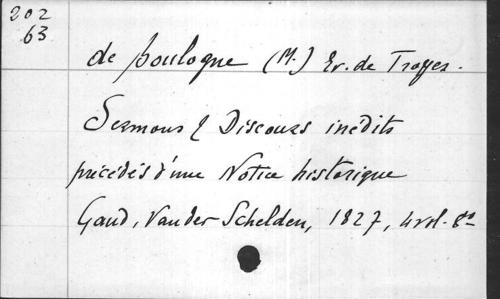 202
63
de boulogne (M.) Ev. de Troyes.
Sermons & Discours inédits
précédés d'une Notice historique
Gand, Vander Schelden, 1827, 4 vol. 8°